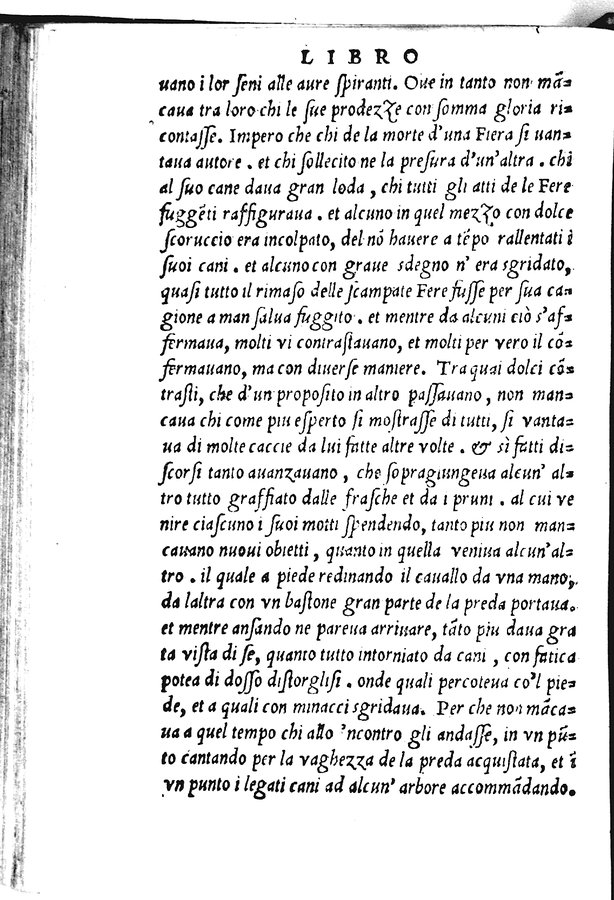 LIBRO
uano i lor ſeni alle aure ſpiranti. Oue in tanto non mã=
caua tra loro chi le ſue prodezze con ſomma gloria ri=
contaſſe. Impero che chi de la morte d'una Fiera ſi uan=
taua autore. et chi ſollecito ne la preſura d'un'altra. chi
al ſuo cane daua gran loda, chi tutti gli atti de le Fere
fuggẽti raffiguraua. et alcuno in quel mezzo con dolce
ſcoruccio era incolpato, del nõ hauere a tẽpo rallentati i
ſuoi cani. et alcuno con graue sdegno n'era sgridato,
quaſi tutto il rimaſo delle ſcampate Fere fuſſe per ſua ca=
gione a man ſalua fuggito. et mentre da alcuni ciò s'af=
fermaua, molti vi contraſtauano, et molti per vero il cõ=
fermauano, ma con diuerſe maniere. Tra quai dolci cõ=
traſti, che d'un propoſito in altro paſſauano, non man=
caua chi come piu eſperto ſi moſtraſſe di tutti, ſi vanta=
ua di molte caccie da lui fatte altre volte. & sì fatti di=
ſcorſi tanto auanzauano, che ſopragiungeua alcun' al=
tro tutto graffiato dalle fraſche et da i pruni. al cui ve
nire ciaſcuno i ſuoi motti ſpendendo, tanto piu non man=
cauano nuoui obietti, quanto in quella veniua alcun'al=
tro. il quale a piede redinando il cauallo da vna mano,
da laltra con vn baſtone gran parte de la preda portaua.
et mentre anſando ne pareua arriuare, tãto piu daua gra
ta viſta di ſe, quanto tutto intorniato da cani, con fatica
potea di doſſo diſtorgliſi. onde quali percoteua co'l pie=
de, et a quali con minacci sgridaua. Per che non mãca=
ua a quel tempo chi allo 'ncontro gli andaſſe, in vn pũ=
to cantando per la vaghezza de la preda acquiſtata, et ĩ
vn punto i legati cani ad alcun' arbore accommãdando.